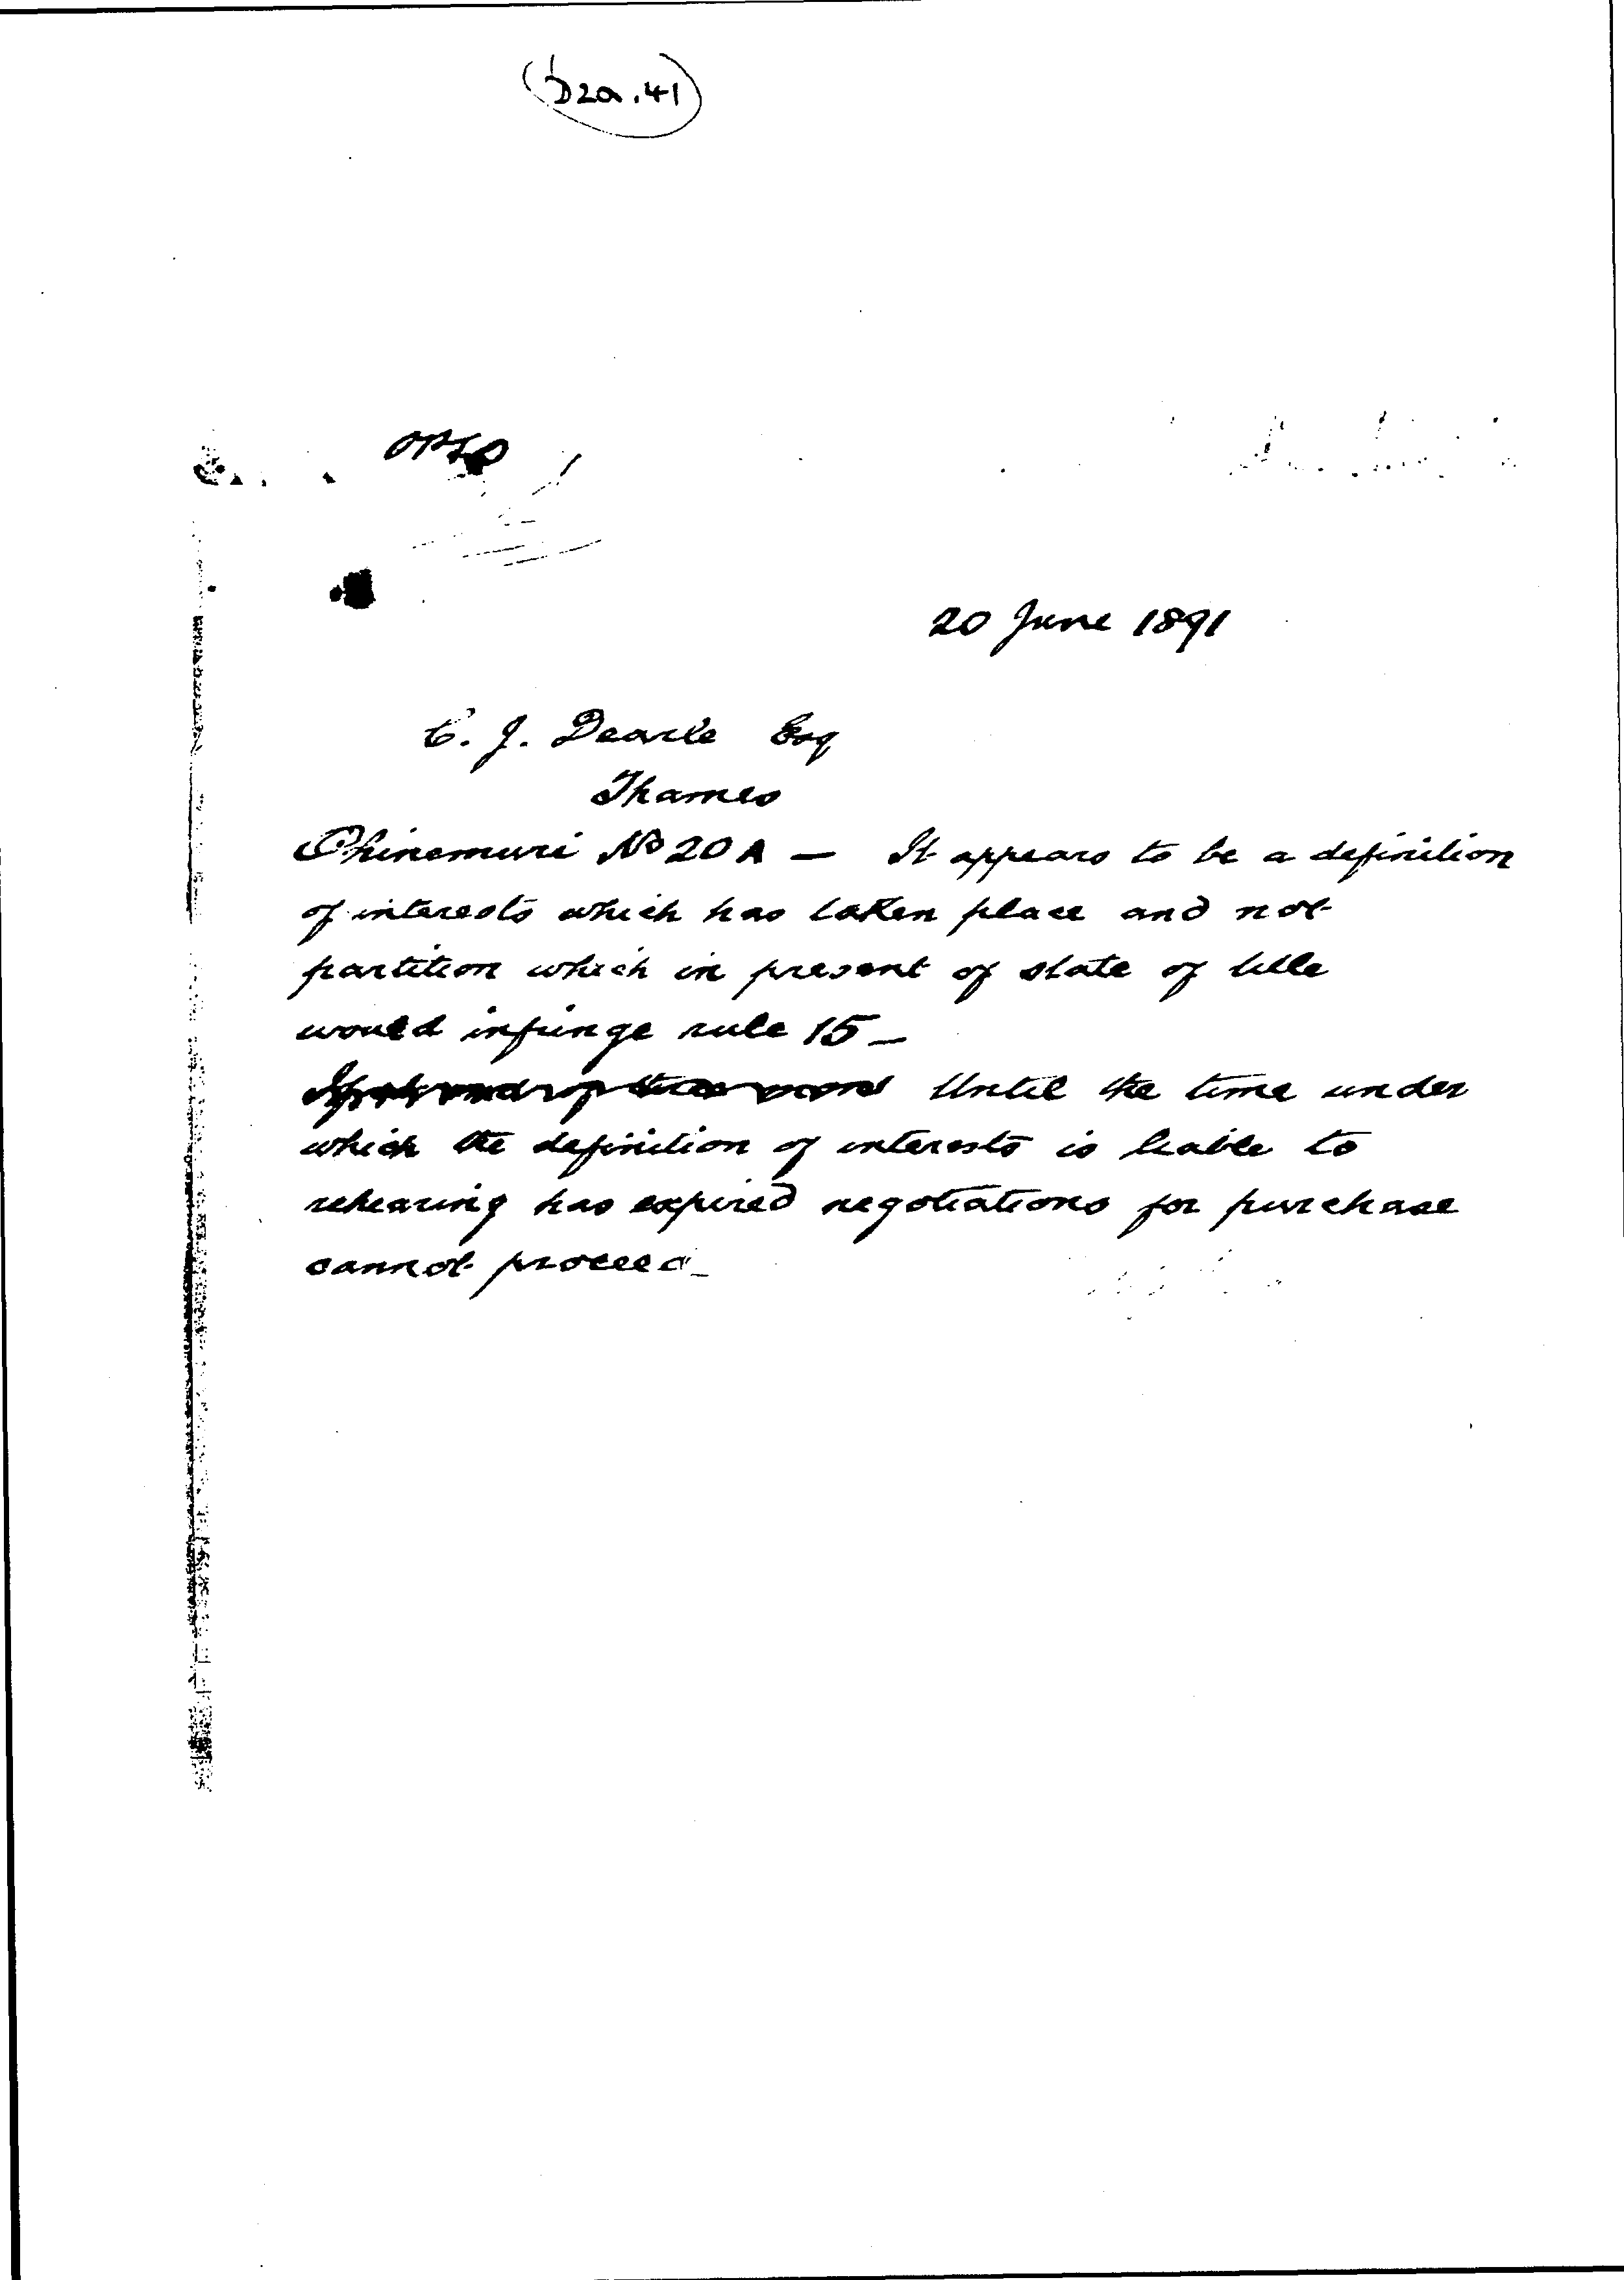 D2a.41
20 June 1891
C. J. Dearle Esq
Thames
Ohinemuri No 20 A — It appears to be a definition
of interests which has taken place and not
partition which in present of state of title
would infringe rule 15 —
Until the time under
which the definition of interests is liable to
rehearing has expired negotiations for purchase
cannot proceed _